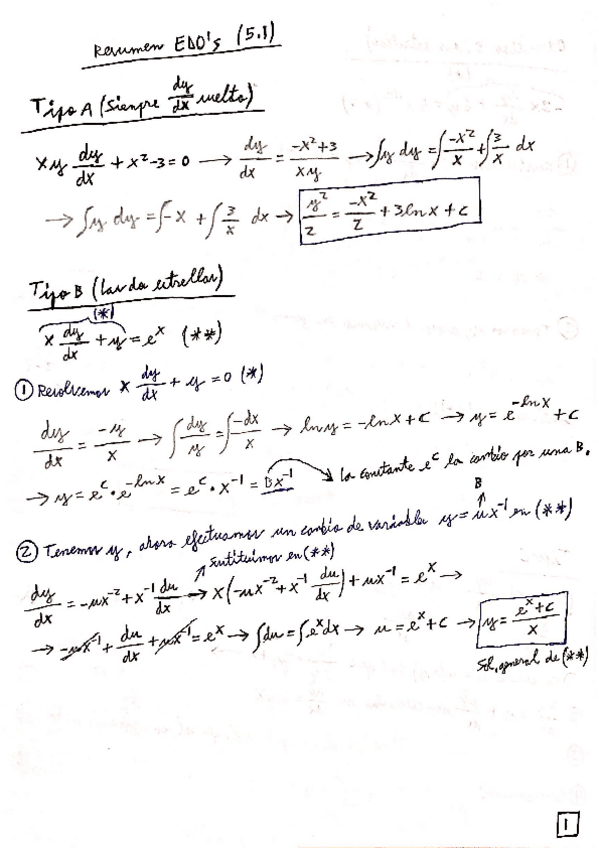 Resumen EDO's (5.1)
Tipo A (Siempre dy/dx suelta)
xy dy/dx + x²-3=0 → dy/dx = (-x²+3)/(xy) → ∫y dy = ∫-x²/x + ∫3/x dx
→ ∫y dy = ∫-x + ∫3/x dx → y²/2 = -x²/2 + 3lnx + c
Tipo B (Las dos estrellas)
(*)
x dy/dx + y = e^x (**)
① Resolvemos x dy/dx + y = 0 (*)
dy/dx = -y/x → ∫dy/y = ∫-dx/x → ln y = -ln x + c → y = e^(-ln x) + c
→ y = e^c · e^(-ln x) = e^c · x⁻¹ = Bx⁻¹ → la constante e^c la cambio por una B.
B
② Tenemos y, ahora efectuamos un cambio de variable y = ux⁻¹ en (**)
sustituimos en (**)
dy/dx = -ux⁻² + x⁻¹ du/dx → x(-ux⁻² + x⁻¹ du/dx) + ux⁻¹ = e^x →
→ -ux⁻¹ + du/dx + ux⁻¹ = e^x → ∫du = ∫e^x dx → u = e^x + c → y = (e^x + c)/x
Sol. general de (**)
1